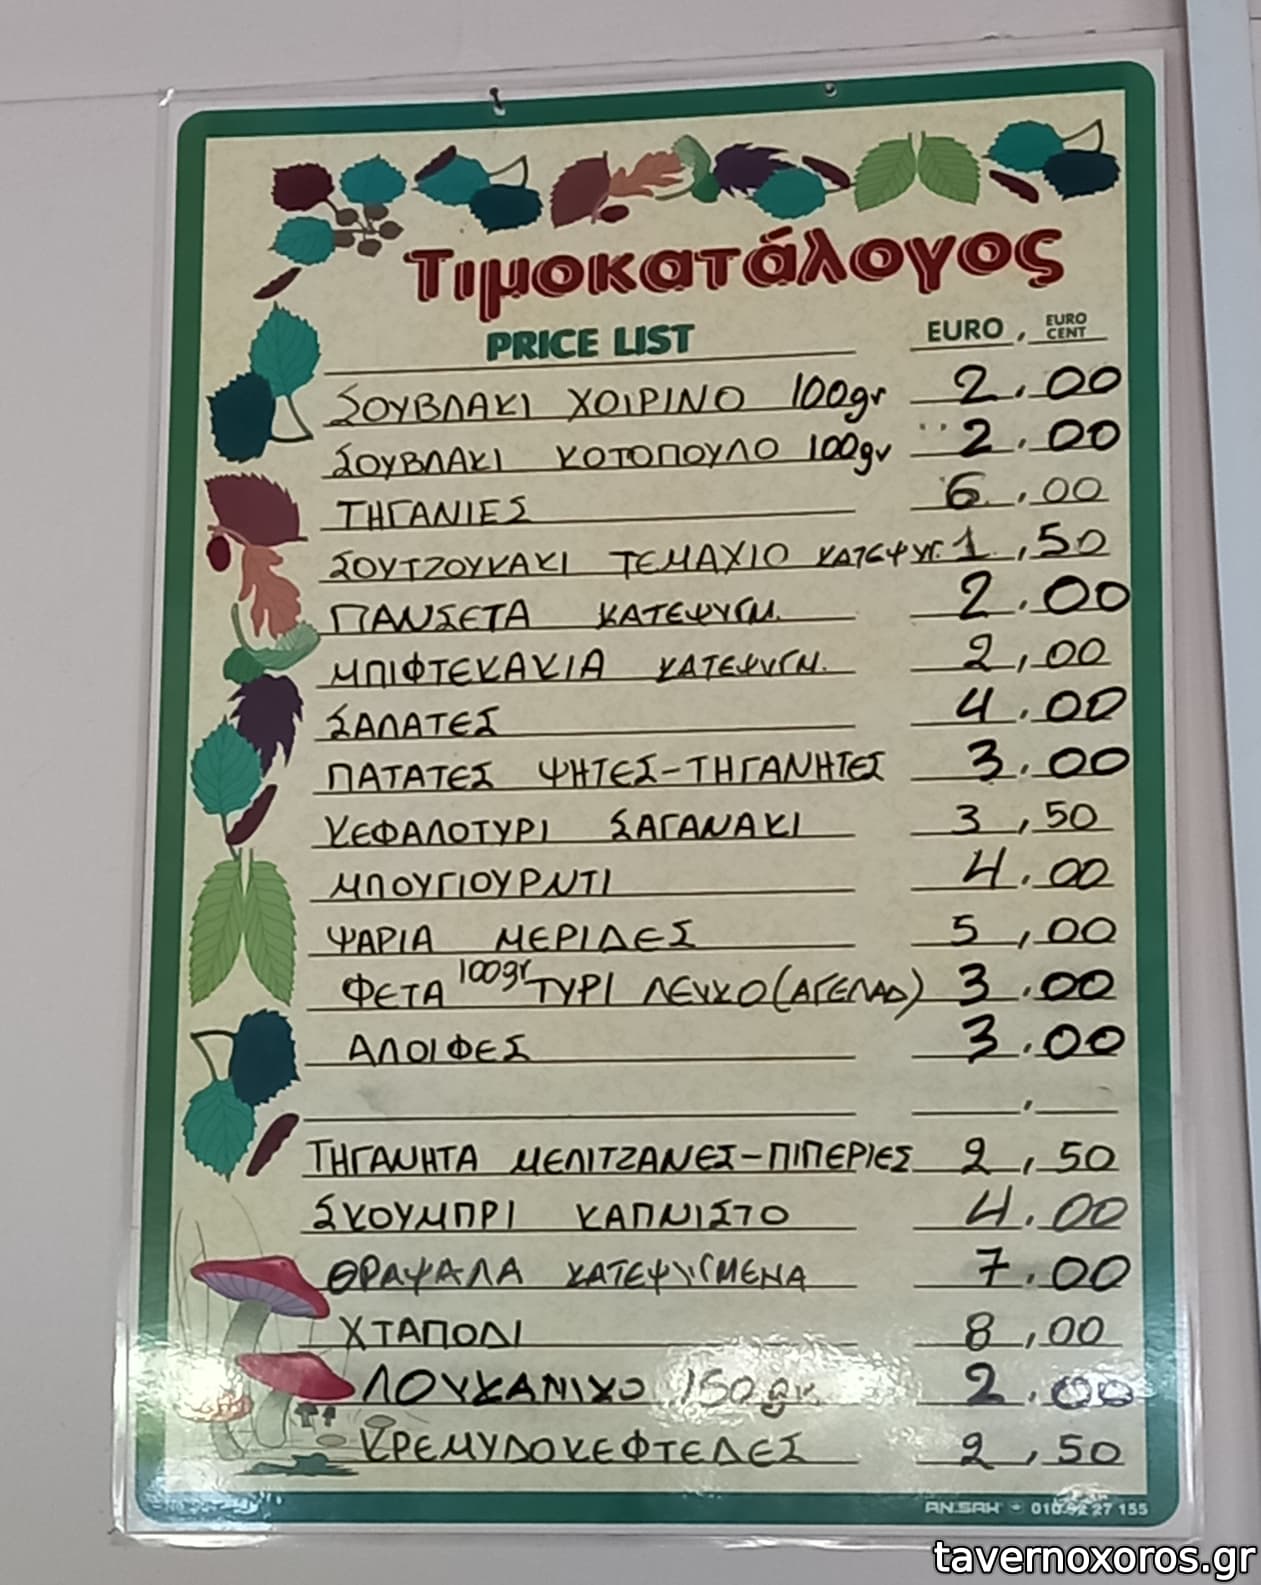 Τιμοκατάλογος
PRICE LIST EURO , EURO CENT
ΣΟΥΒΛΑΚΙ ΧΟΙΡΙΝΟ 100gr 2,00
ΣΟΥΒΛΑΚΙ ΚΟΤΟΠΟΥΛΟ 100gr 2,00
ΤΗΓΑΝΙΕΣ 6,00
ΣΟΥΤΖΟΥΚΑΚΙ ΤΕΜΑΧΙΟ ΚΑΤΕΨΥΓ. 1,50
ΠΑΝΣΕΤΑ ΚΑΤΕΨΥΓΜ. 2,00
ΜΠΙΦΤΕΚΑΚΙΑ ΚΑΤΕΨΥΓΜ. 2,00
ΣΑΛΑΤΕΣ 4,00
ΠΑΤΑΤΕΣ ΨΗΤΕΣ-ΤΗΓΑΝΗΤΕΣ 3,00
ΚΕΦΑΛΟΤΥΡΙ ΣΑΓΑΝΑΚΙ 3,50
ΜΠΟΥΓΙΟΥΡΝΤΙ 4,00
ΨΑΡΙΑ ΜΕΡΙΔΕΣ 5,00
ΦΕΤΑ 100gr ΤΥΡΙ ΛΕΥΚΟ (ΑΓΕΛΑΔ) 3,00
ΑΛΟΙΦΕΣ 3,00
,
ΤΗΓΑΝΗΤΑ ΜΕΛΙΤΖΑΝΕΣ-ΠΙΠΕΡΙΕΣ 2,50
ΣΚΟΥΜΠΡΙ ΚΑΠΝΙΣΤΟ 4,00
ΘΡΑΨΑΛΑ ΚΑΤΕΨΥΓΜΕΝΑ 7,00
ΧΤΑΠΟΔΙ 8,00
ΛΟΥΚΑΝΙΚΟ 150gr 2,00
ΚΡΕΜΥΔΟΚΕΦΤΕΔΕΣ 2,50
AN.SAK - 010 92 27 155
tavernoxoros.gr